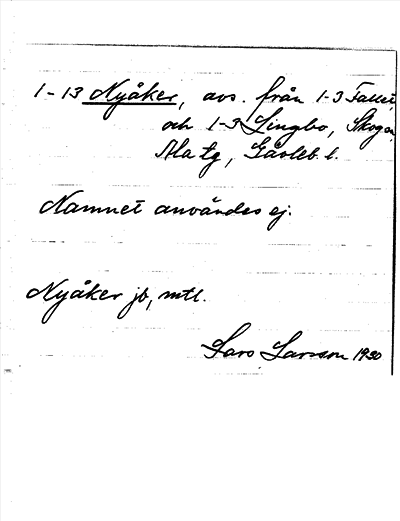 1-13 Nyåker, avs. från 1-3 Fallet
och 1-3 Lingbo, Skogen,
Ala tg, Gävleb. l.
Namnet användes ej.
Nyåker jb, mtl.
Lars Larsson 1930